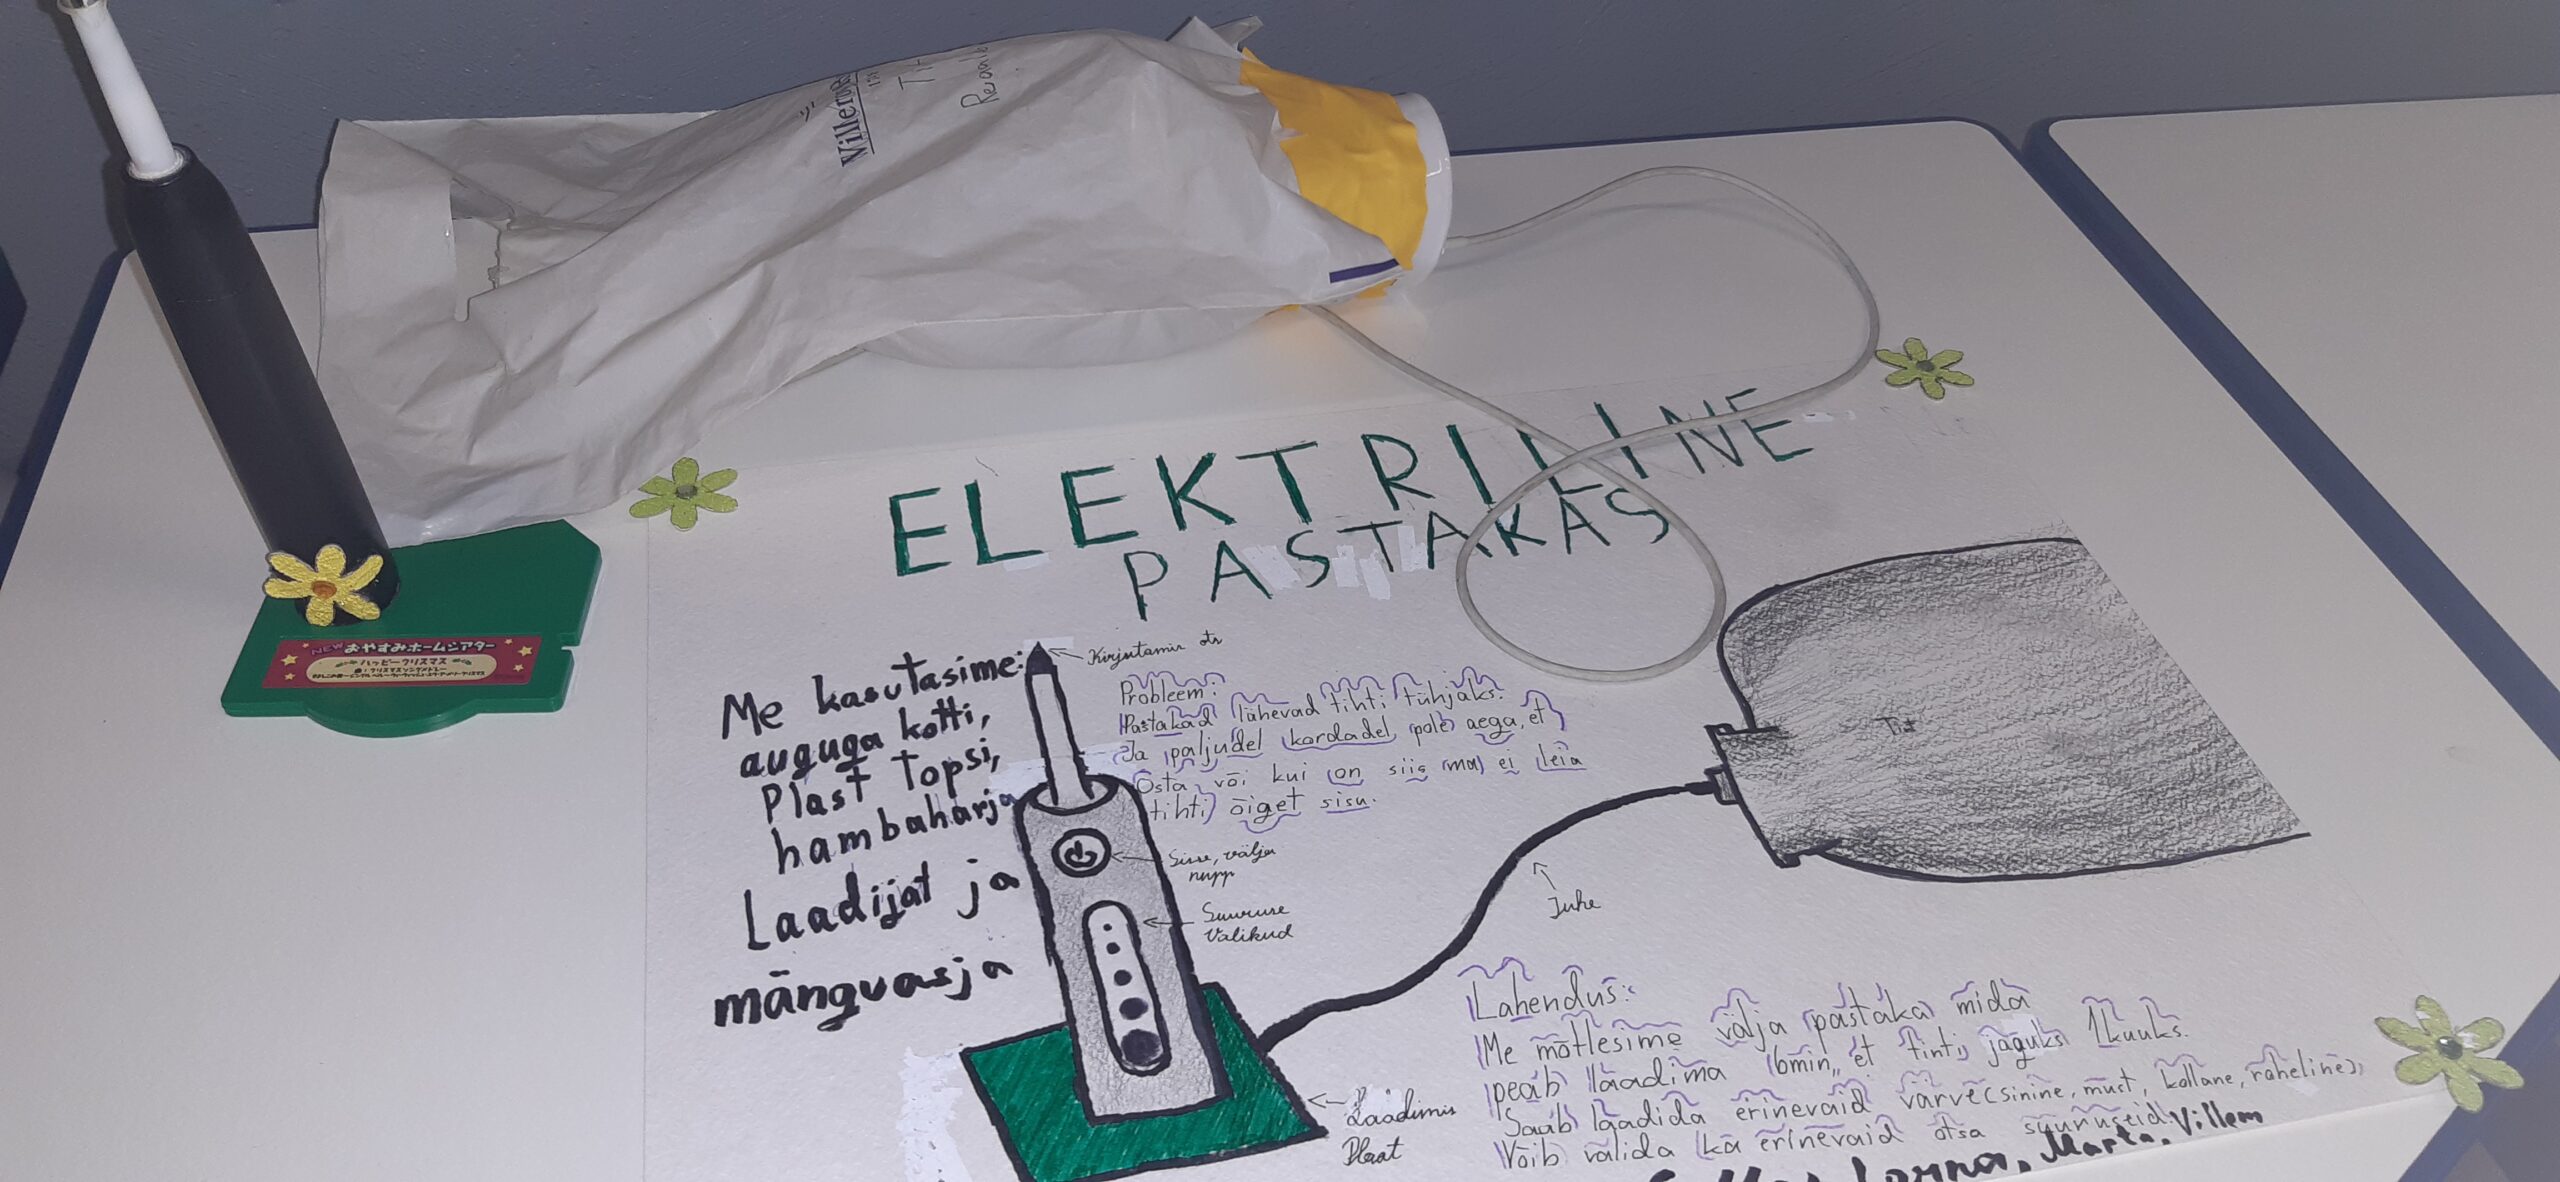 ELEKTRILINE
PASTAKAS
Me kasutasime:
auguga kotti,
Plast topsi,
hambaharja
Laadijat ja
mänguasja
Kirjutamis ots
Probleem:
Pastakad lähevad tihti tühjaks.
Ja paljudel kordadel pole aega, et
Osta või kui on siis ma ei leia
tihti õiget sisu.
Sisse, välja
nupp
Suuruse
Valikud
Juhe
Tint
Laadimis
Plaat
Lahendus:
Me mõtlesime välja pastaka mida
peab laadima 6min, et tinti jaguks 1kuuks.
Saab laadida erinevaid värve(sinine, must, kollane, roheline),
Võib valida ka erinevaid otsa suuruseid.
Lorna, Marta, Villem
NEW おやすみホームシアター
ハッピークリスマス